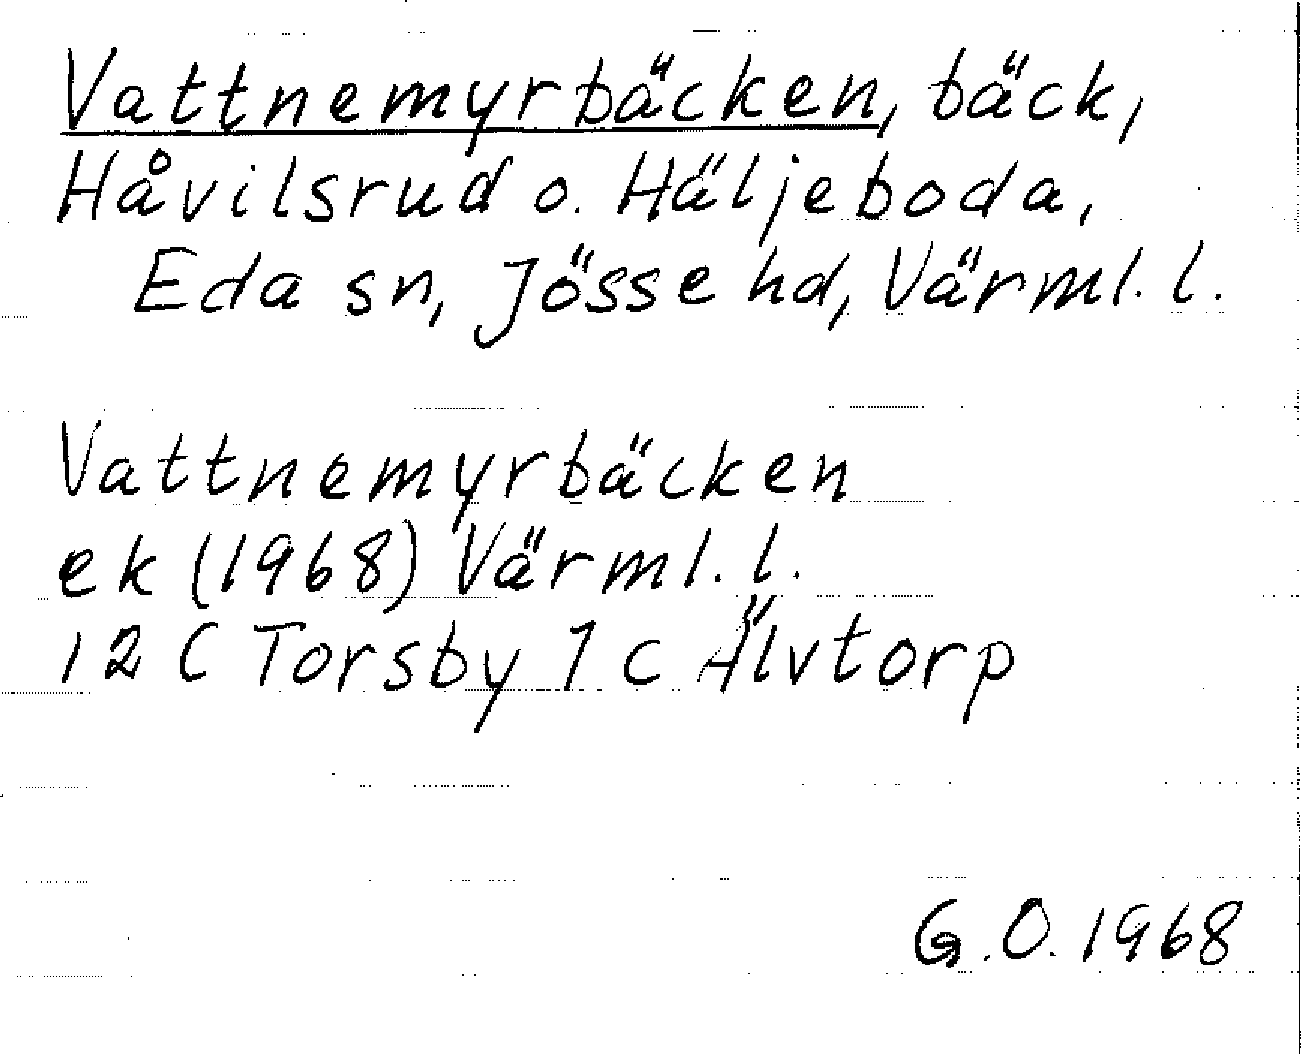 Vattnemyrbäcken, bäck,
Håvilsrud o. Häljeboda,
Eda sn, Jösse hd, Värml. l.
Vattnemyrbäcken
ek (1968) Värml. l.
12 C Torsby 1 c Älvtorp
G.O. 1968